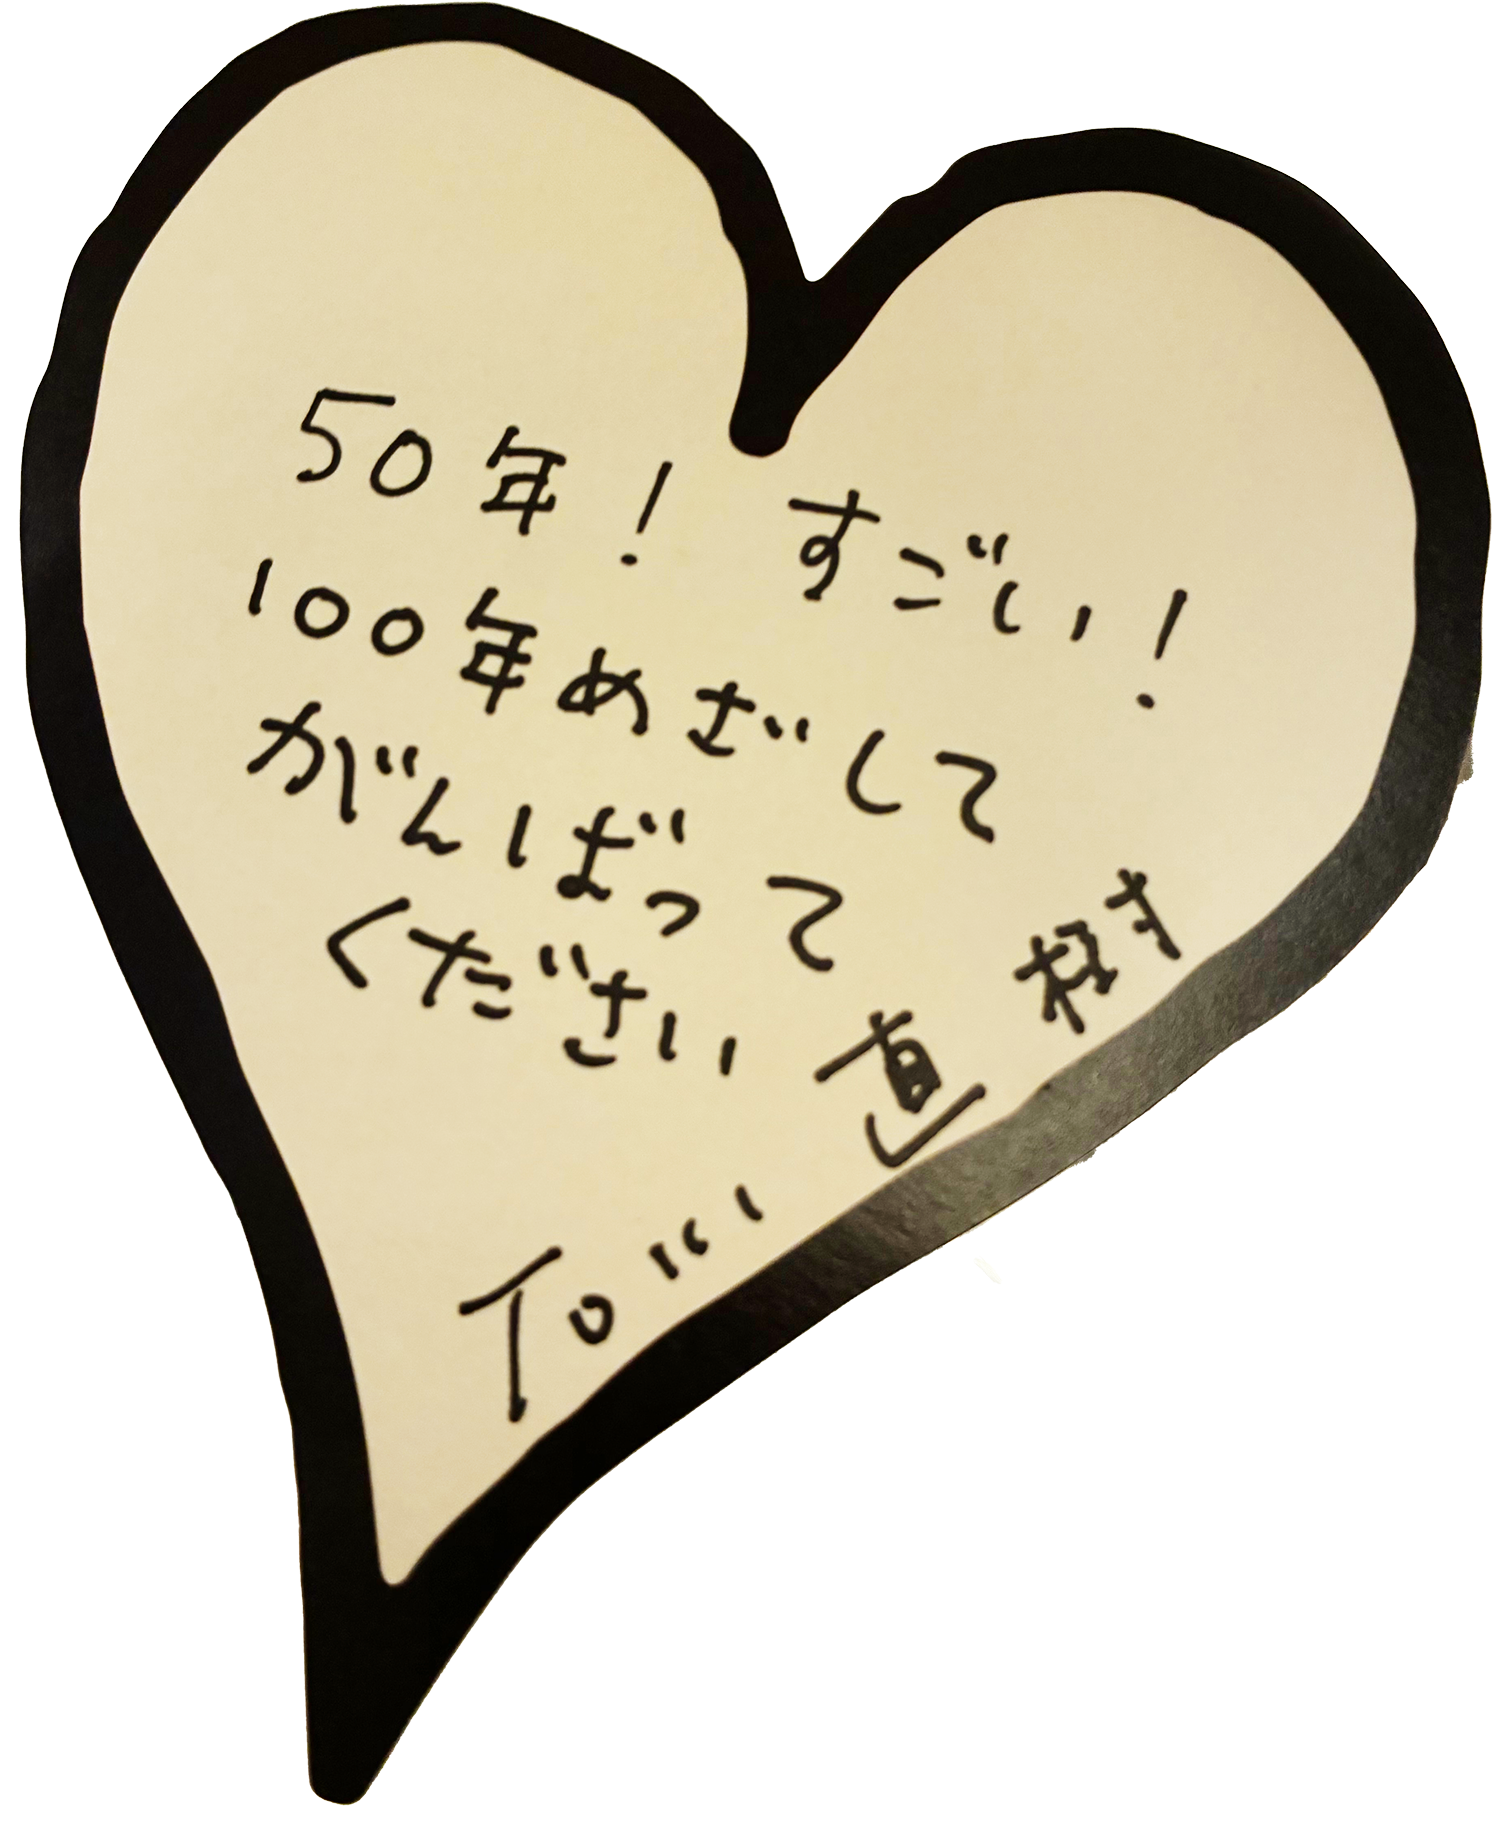 50年！ すごい！
100年めざして
がんばって
ください
直樹